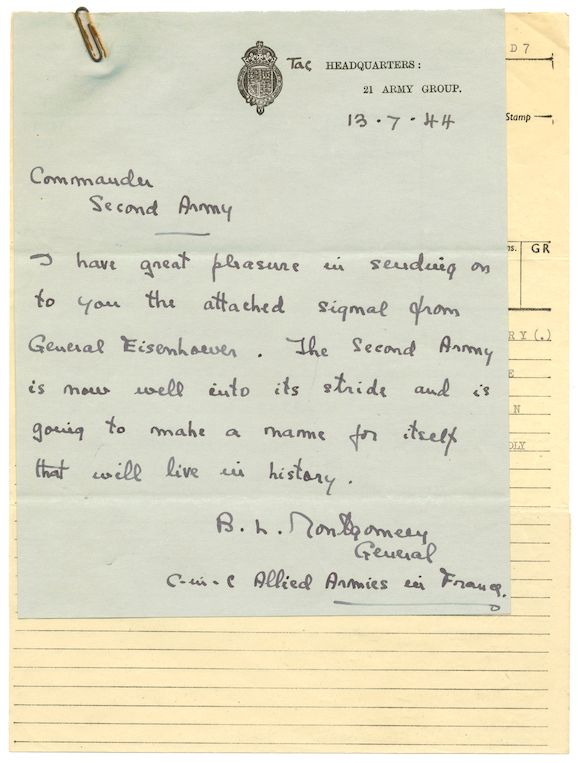 Tac HEADQUARTERS:
21 ARMY GROUP.
13.7.44
Commander
Second Army
I have great pleasure in sending on
to you the attached signal from
General Eisenhower. The Second Army
is now well into its stride and is
going to make a name for itself
that will live in history.
B. L. Montgomery
General
C-in-C Allied Armies in France.
D 7
Stamp
ns. GR
RY (.)
E
N
OLY